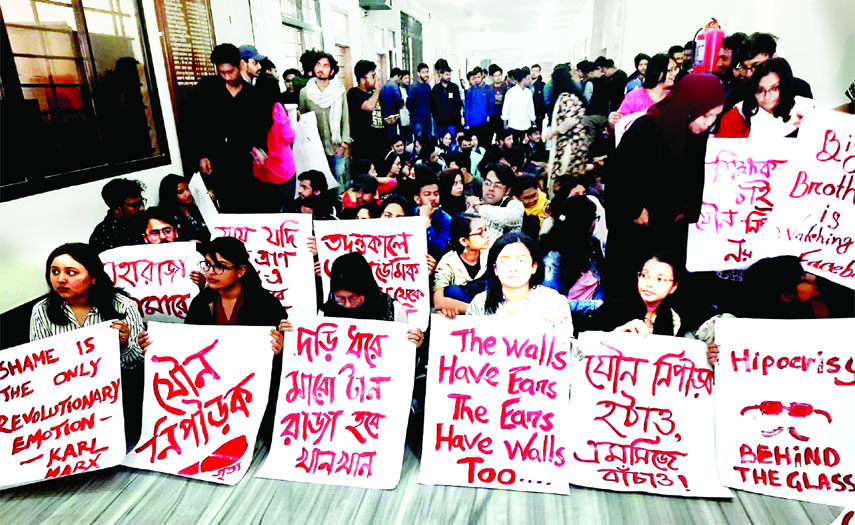 SHAME IS
THE ONLY
REVOLUTIONARY
EMOTION -
- KARL
MARX
যৌন
নিপীড়ক
দড়ি ধরে
মারো টান
রাজা হবে
খানখান
The Walls
Have Ears
The Ears
Have Walls
Too....
যৌন নিপীড়ক
হটাও,
এমসিজে
বাঁচাও!
Hipocrisy
BEHIND
THE GLASS
যদি
তদন্তকালে
থেকে
শিক্ষক
চাই
যৌন
নয়
Big
Brother
is
Watching
Facebook